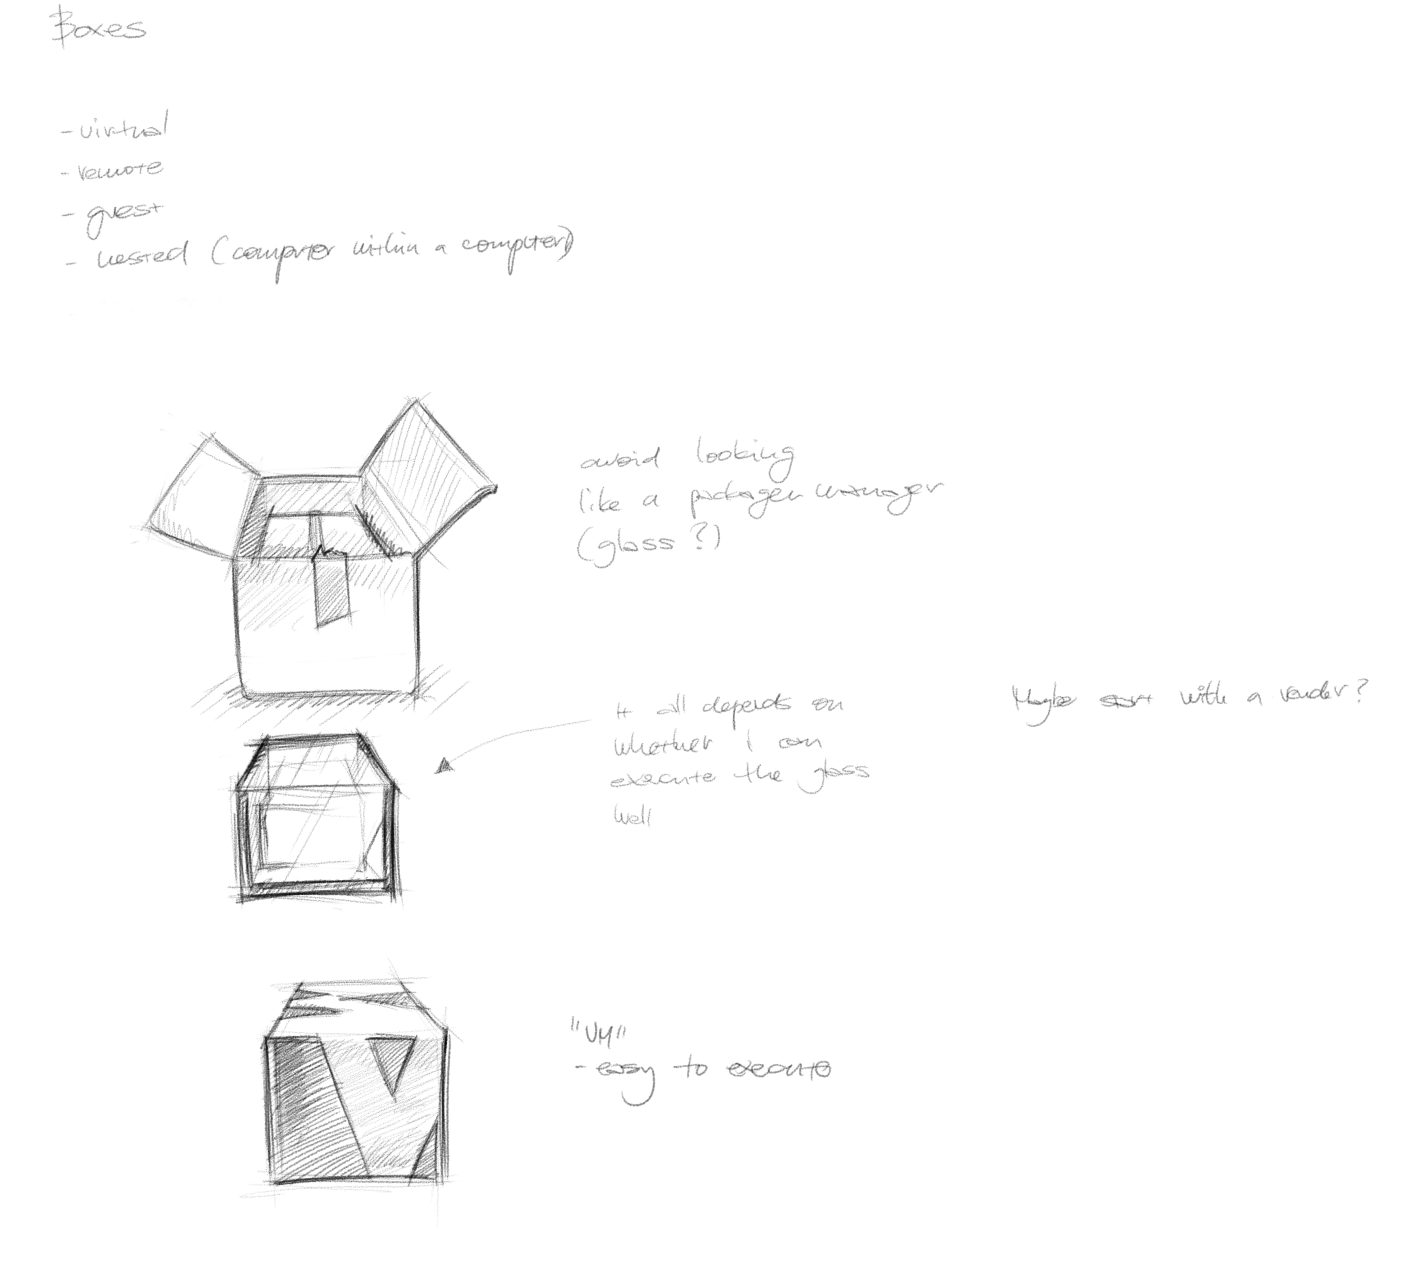 Boxes
- virtual
- remote
- guest
- nested (computer within a computer)
avoid looking
like a packager manager
(glass?)
It all depends on
whether I can
execute the glass
well
Maybe start with a render?
"VM"
- easy to execute